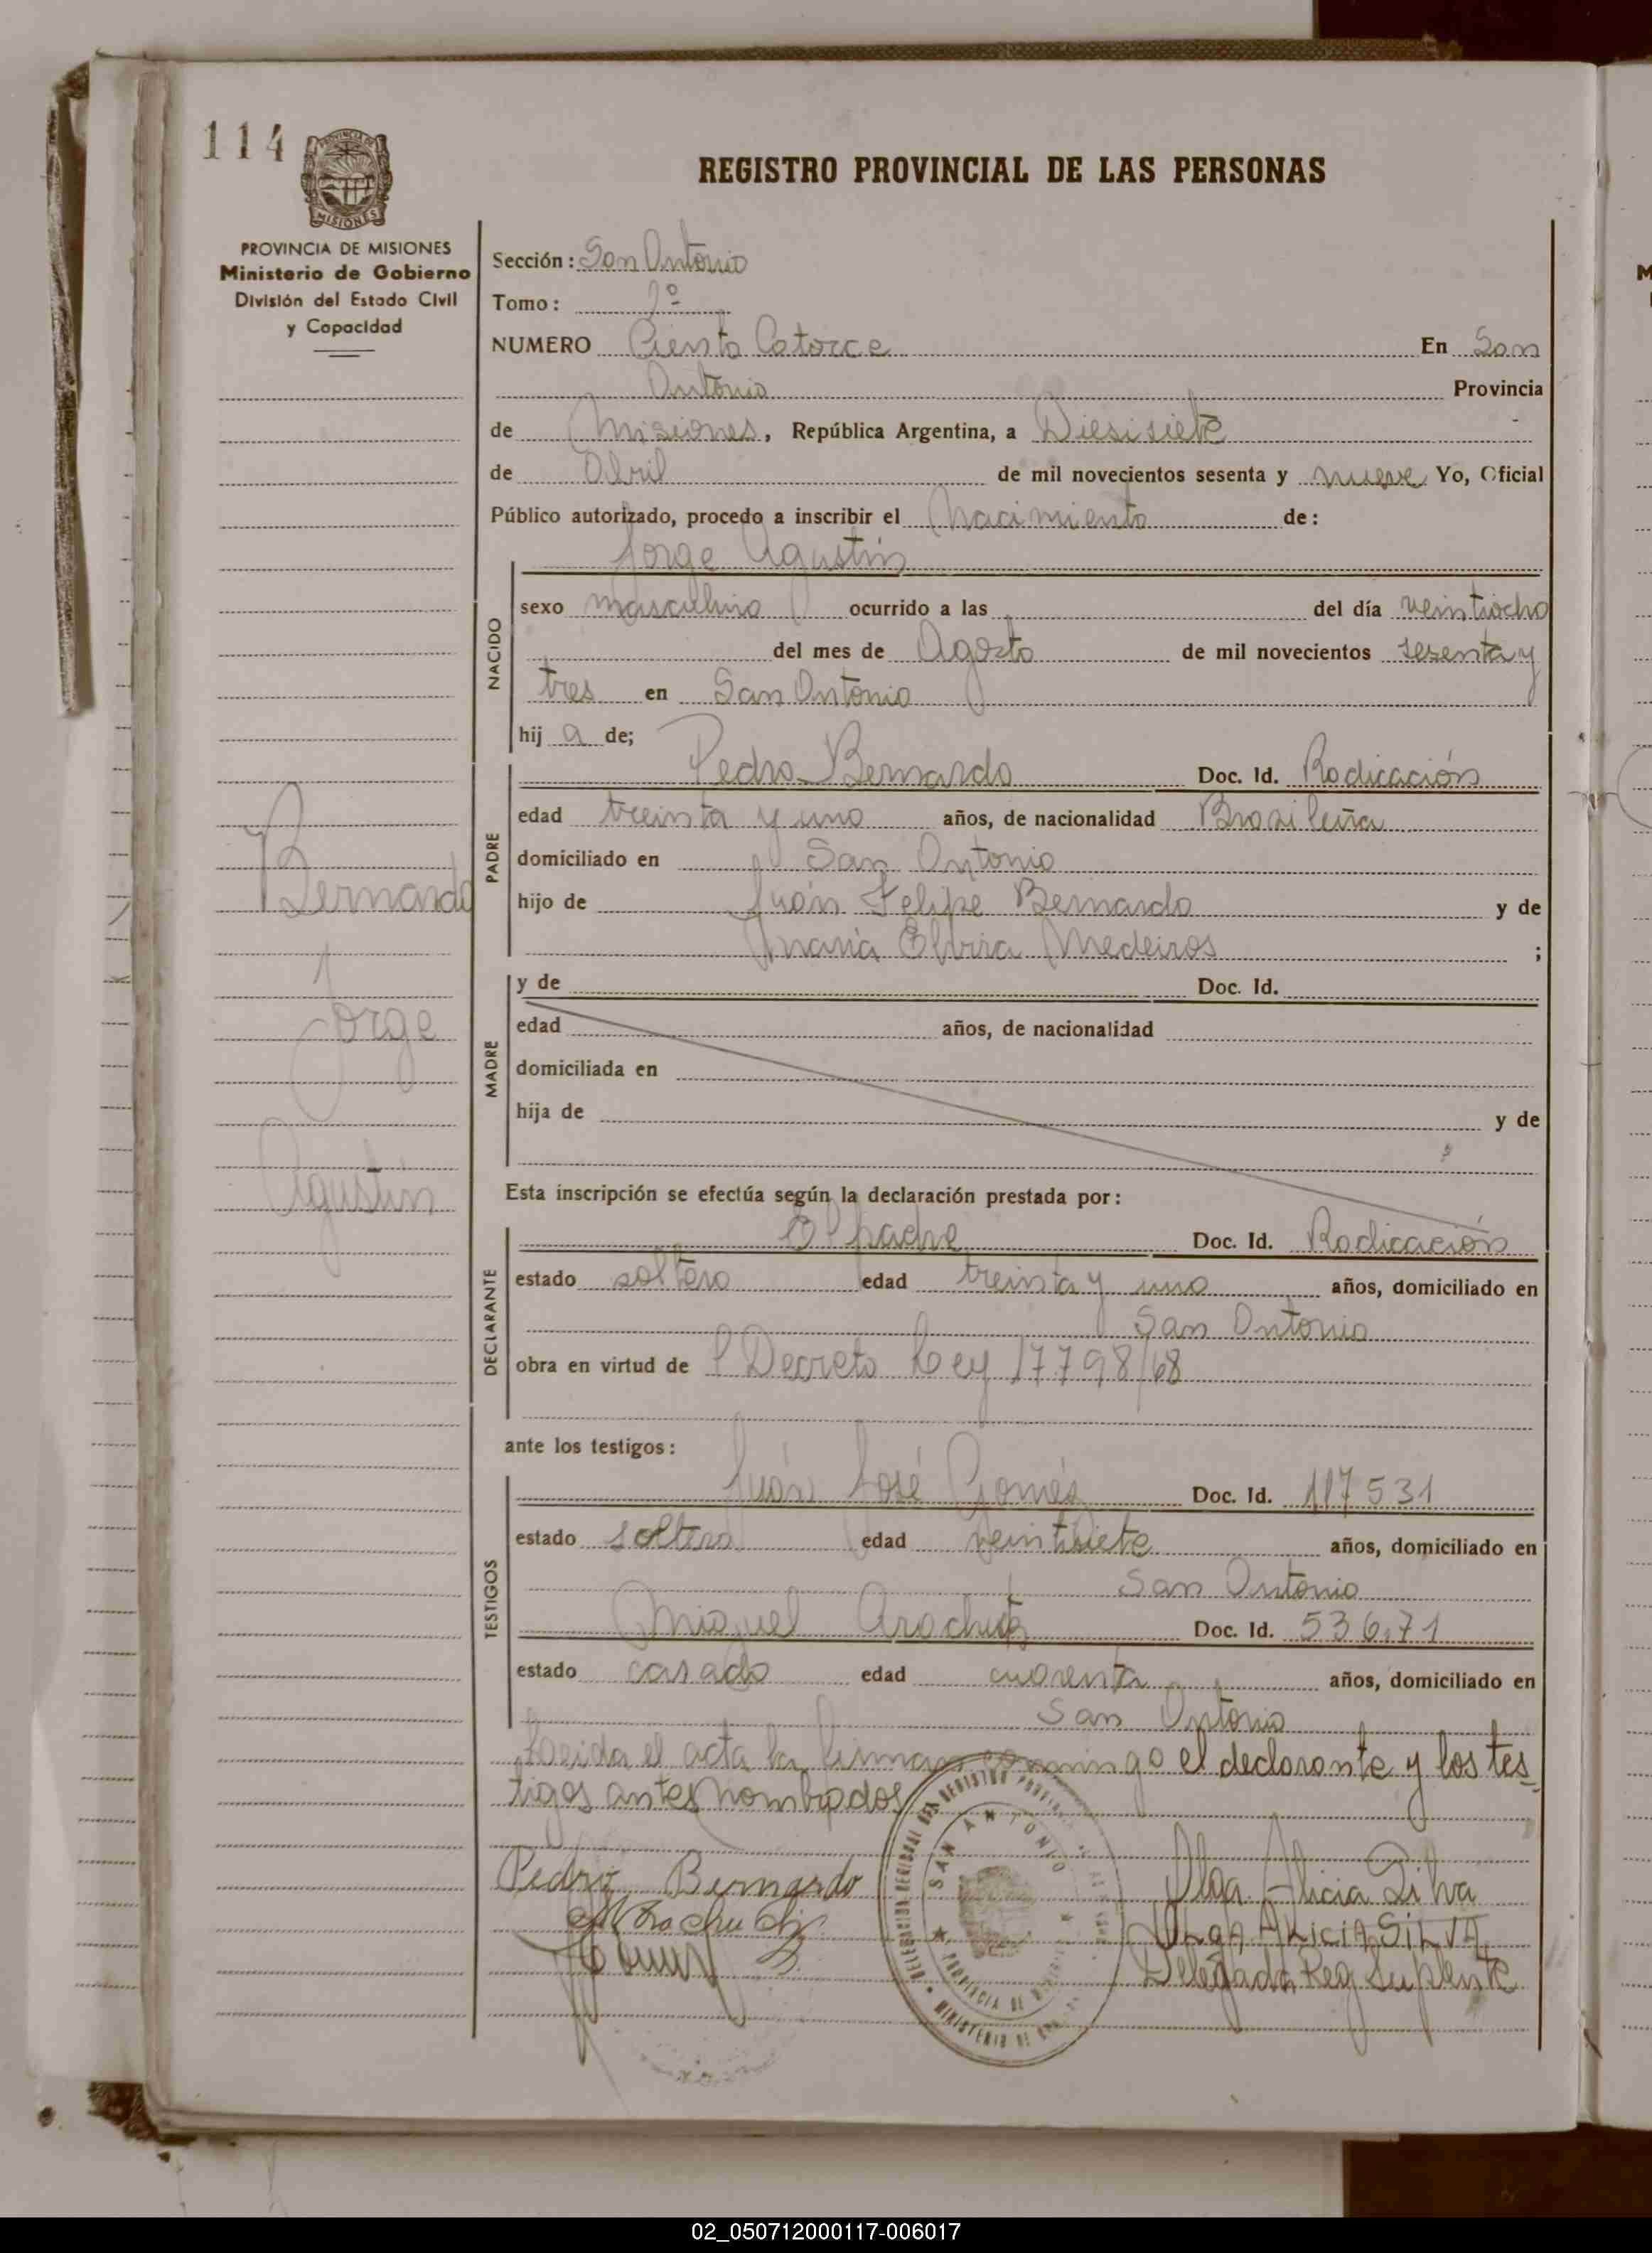 114
PROVINCIA DE MISIONES
Ministerio de Gobierno
División del Estado Civil
y Capacidad
REGISTRO PROVINCIAL DE LAS PERSONAS
Sección: San Antonio
Tomo: 2º
NUMERO Ciento Catorce En San
Antonio Provincia
de Misiones, República Argentina, a Diesisiete
de Abril de mil novecientos sesenta y nueve Yo, Oficial
Público autorizado, procedo a inscribir el Nacimiento de:
Jorge Agustín
NACIDO
sexo masculino ocurrido a las del día veintiocho
del mes de Agosto de mil novecientos sesenta y
tres en San Antonio
hij a de;
PADRE
Pedro Bernardo Doc. Id. Radicación
edad treinta y uno años, de nacionalidad Brasileña
domiciliado en San Antonio
hijo de Juán Felipe Bernardo y de
María Elvira Medeiros ;
Bernardo
Jorge
Agustín
MADRE
y de Doc. Id.
edad años, de nacionalidad
domiciliada en
hija de y de
Esta inscripción se efectúa según la declaración prestada por:
DECLARANTE
El padre Doc. Id. Radicación
estado soltero edad treinta y uno años, domiciliado en
San Antonio
obra en virtud de Decreto Ley 17798/68
ante los testigos:
TESTIGOS
Juán José Gomés Doc. Id. 117531
estado soltero edad veintisiete años, domiciliado en
San Antonio
Miguel Doc. Id. 536.71
estado casado edad cuarenta años, domiciliado en
San Antonio
Leida el acta la firman conmigo el declarante y los tes
tigos antes nombrados
Pedro Bernardo
Olga Alicia Silva
OLGA ALICIA SILVA
Delegada Reg. Suplente
SAN ANTONIO
PROVINCIA DE
MINISTERIO DE
02_050712000117-006017